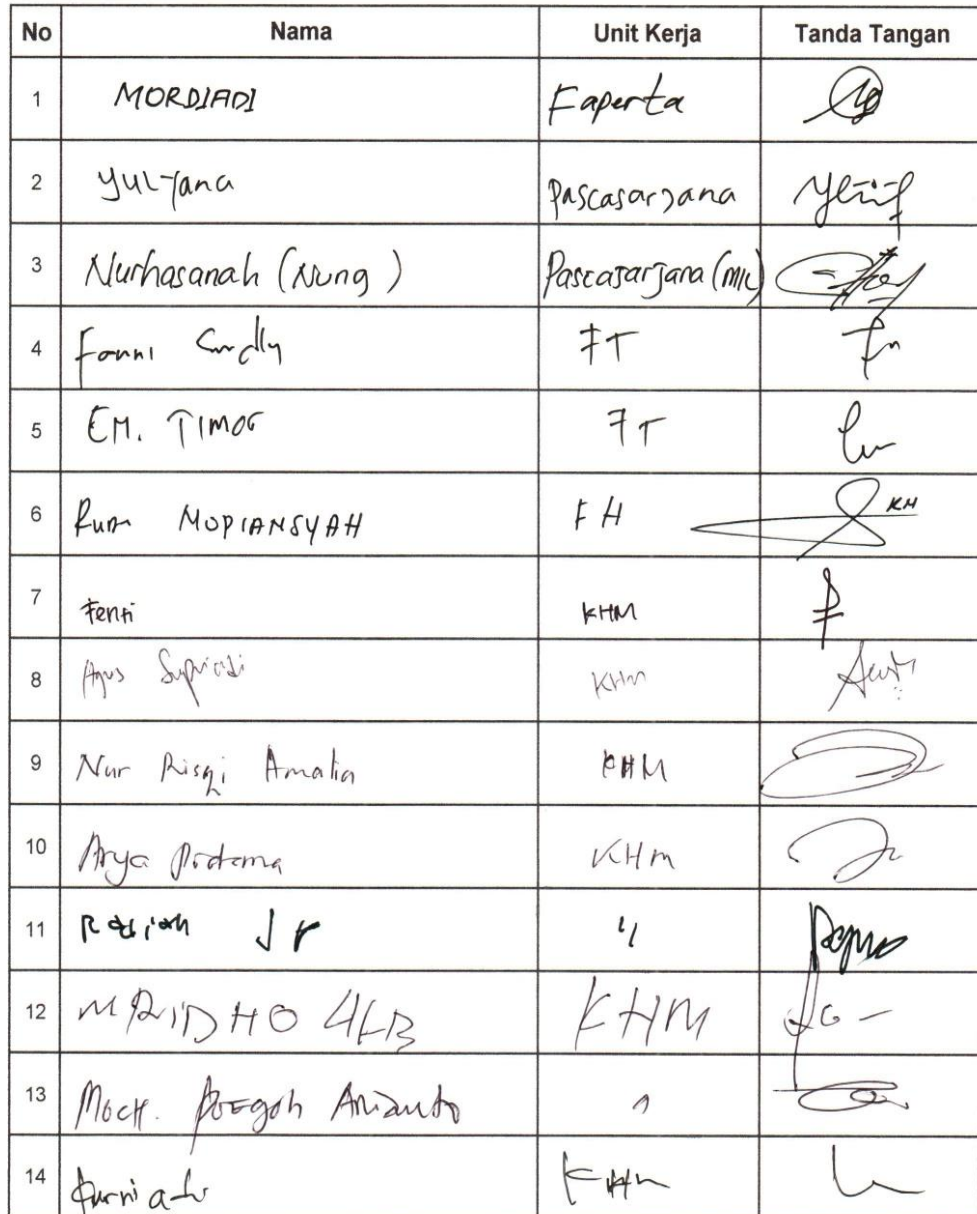 No Nama Unit Kerja Tanda Tangan
1 MORDIADI Faperta
2 Yulyana Pascasarjana
3 Nurhasanah (Nung) Pascasarjana (MIL)
4 Fanni FT
5 EM. TIMOR FT
6 MOPIANSYAH FH KH
7 Fenti KHM
8 Agus Supriadi KHM
9 Nur Risqi Amalia KHM
10 Arya Pratama KHM
11 Jr "
12 M RIDHO KHM
13 Moch. Arianto "
14 KHM